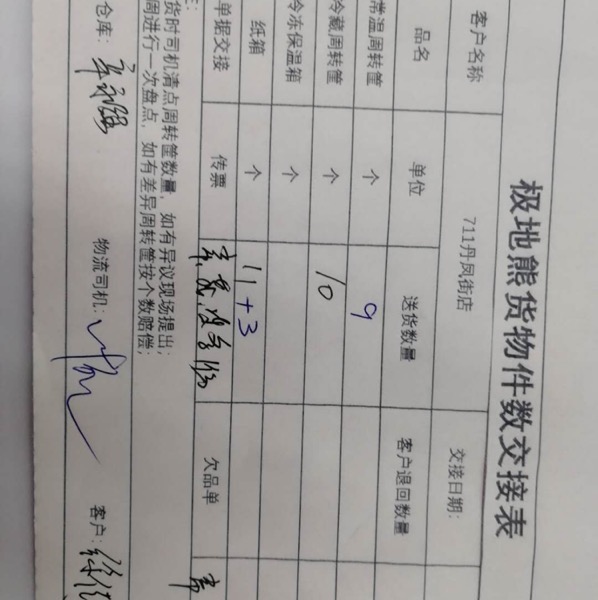 极地熊货物件数交接表
客户名称 711丹凤街店 交接日期:
品名 单位 送货数量 客户退回数量
常温周转筐 个 9
冷藏周转筐 个 10
冷冻保温箱 个
纸箱 个 11+3
单据交接 传票 欠品单
货时司机清点周转筐数量,如有异议现场提出;
周进行一次盘点,如有差异周转筐按个数赔偿;
仓库: 物流司机: 客户: